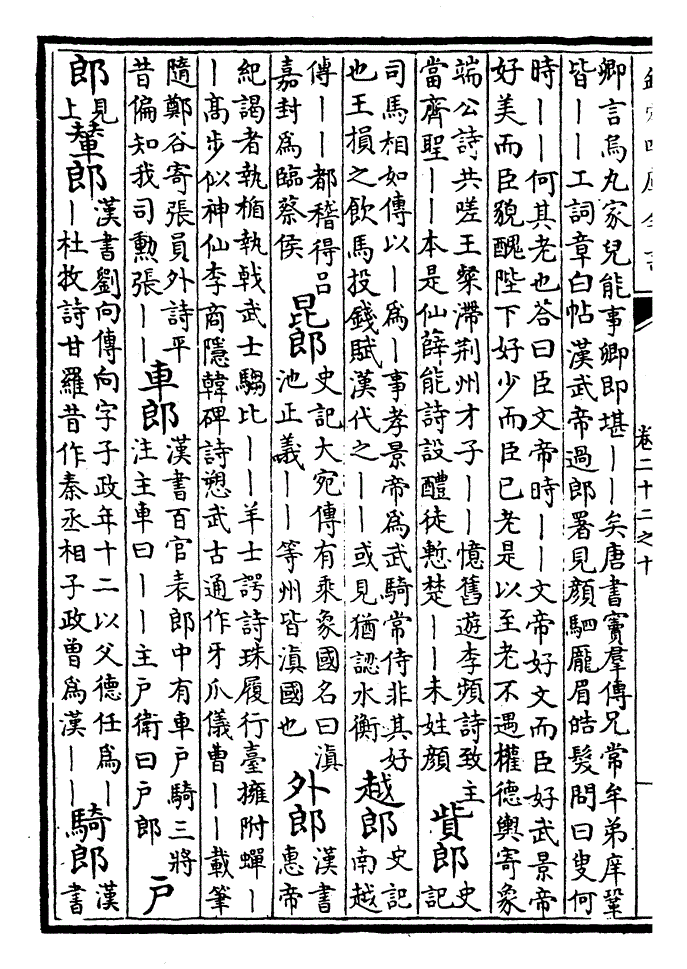 卷二十二之十
卿言烏丸家兒能事卿即堪——矣唐書竇羣傳兄常牟弟庠鞏
皆——工詞章白帖漢武帝過郎署見顔駟龎眉皓髮問曰叟何
時——何其老也荅曰臣文帝時——文帝好文而臣好武景帝
好美而臣貌醜陛下好少而臣已老是以至老不遇權德輿寄象
端公詩共嗟王粲滯荆州才子——憶舊遊李頻詩致主
當齊聖——本是仙薛能詩設醴徒慙楚——未姓顔
貲郎
史
記
司馬相如傳以—爲—事孝景帝爲武騎常侍非其好
也王損之飲馬投錢賦漢代之——或見猶認水衡
越郎
史記
南越
傳——都稽得吕
嘉封爲臨蔡侯
昆郎
史記大宛傳有乘象國名曰滇
池正義——等州皆滇國也
外郎
漢書
惠帝
紀謁者執楯執戟武士騶比——羊士諤詩珠履行臺擁附蟬—
—髙步似神仙李商隱韓碑詩愬武古通作牙爪儀曹——載筆
隨鄭谷寄張員外詩平
昔偏知我司勲張——
車郎
漢書百官表郎中有車户騎三將
注主車曰——主户衛曰户郎
户
郎
見
上
輦郎
漢書劉向傳向字子政年十二以父德任爲—
—杜牧詩甘羅昔作秦丞相子政曽爲漢——
騎郎
漢
書